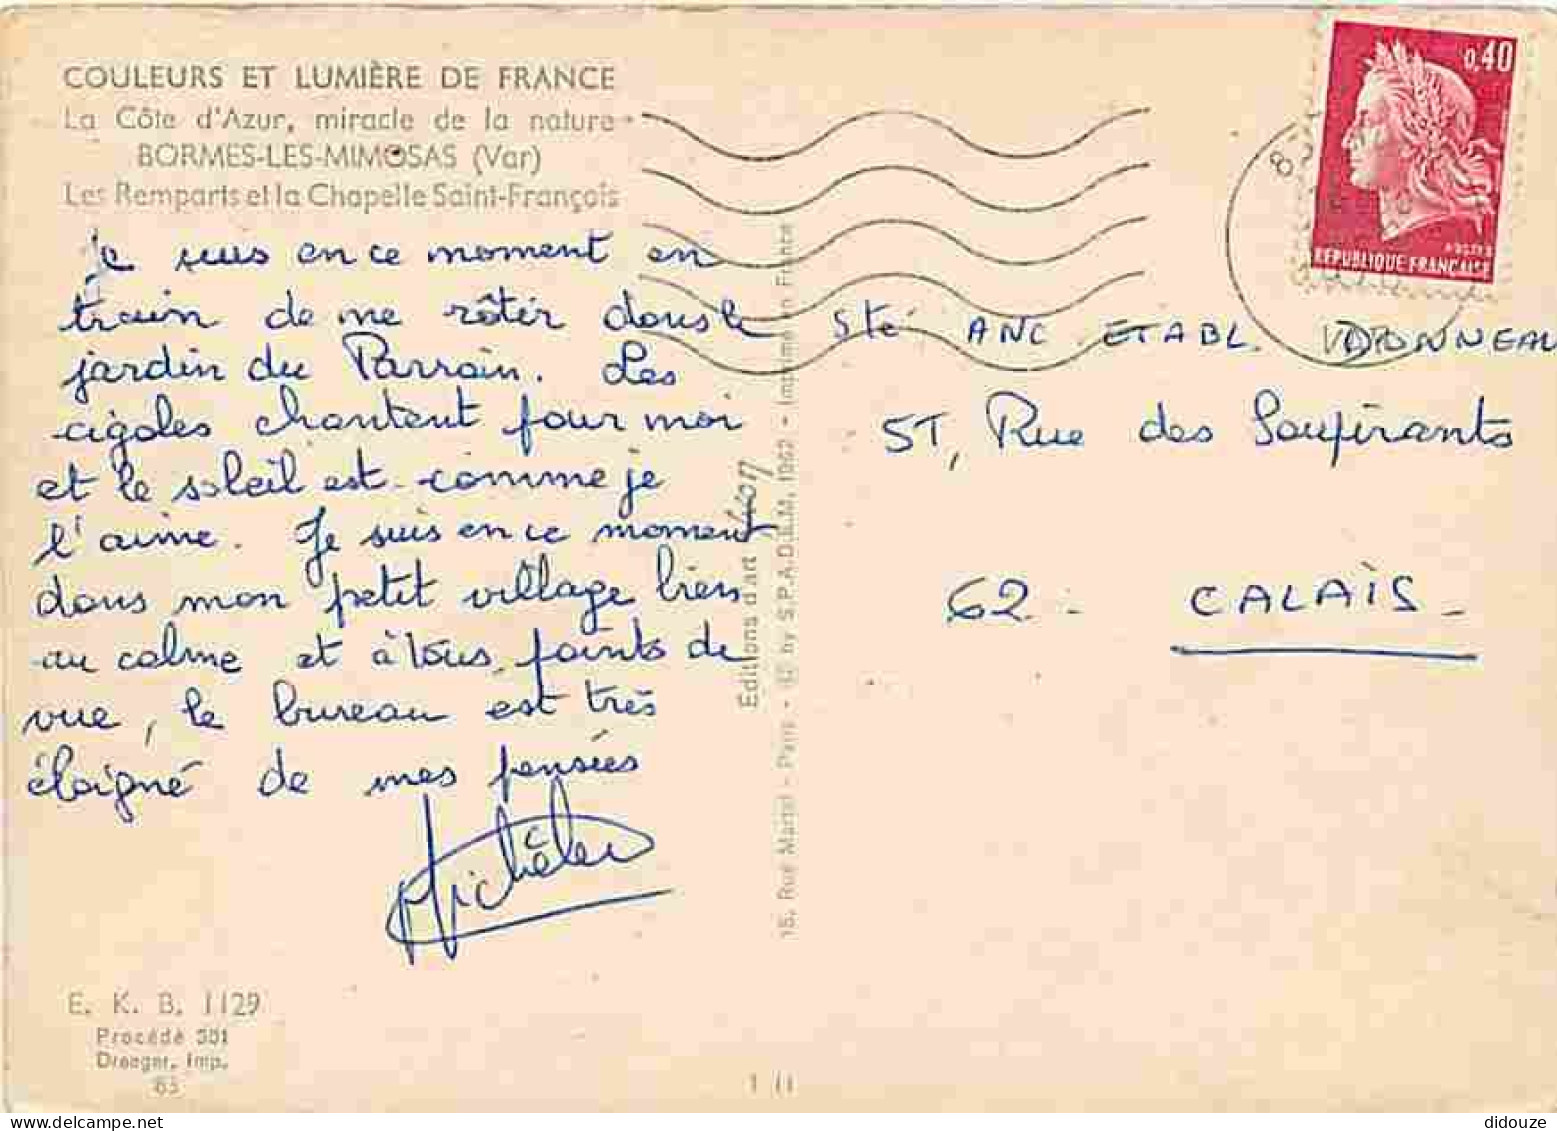 COULEURS ET LUMIÈRE DE FRANCE
La Côte d'Azur, miracle de la nature
BORMES-LES-MIMOSAS (Var)
Les Remparts et la Chapelle Saint-François
Je suis en ce moment en
train de me rôtir dans le
jardin du Parrain. Les
cigales chantent pour moi
et le soleil est comme je
l'aime. Je suis en ce moment
dans mon petit village bien
au calme et à tous points de
vue, le bureau est très
éloigné de mes pensées
E. K. B. 1129
Procédé 301
Draeger, Imp.
63
Editions d'art yvon
15, Rue Martel - Paris - by S.P.A.D.E.M. 1962 - Imprimé en France
0,40
POSTES
REPUBLIQUE FRANÇAISE
Sté ANC. ETABL. DONNEAU
51, Rue des Soupirants
62 - CALAIS -
didouze